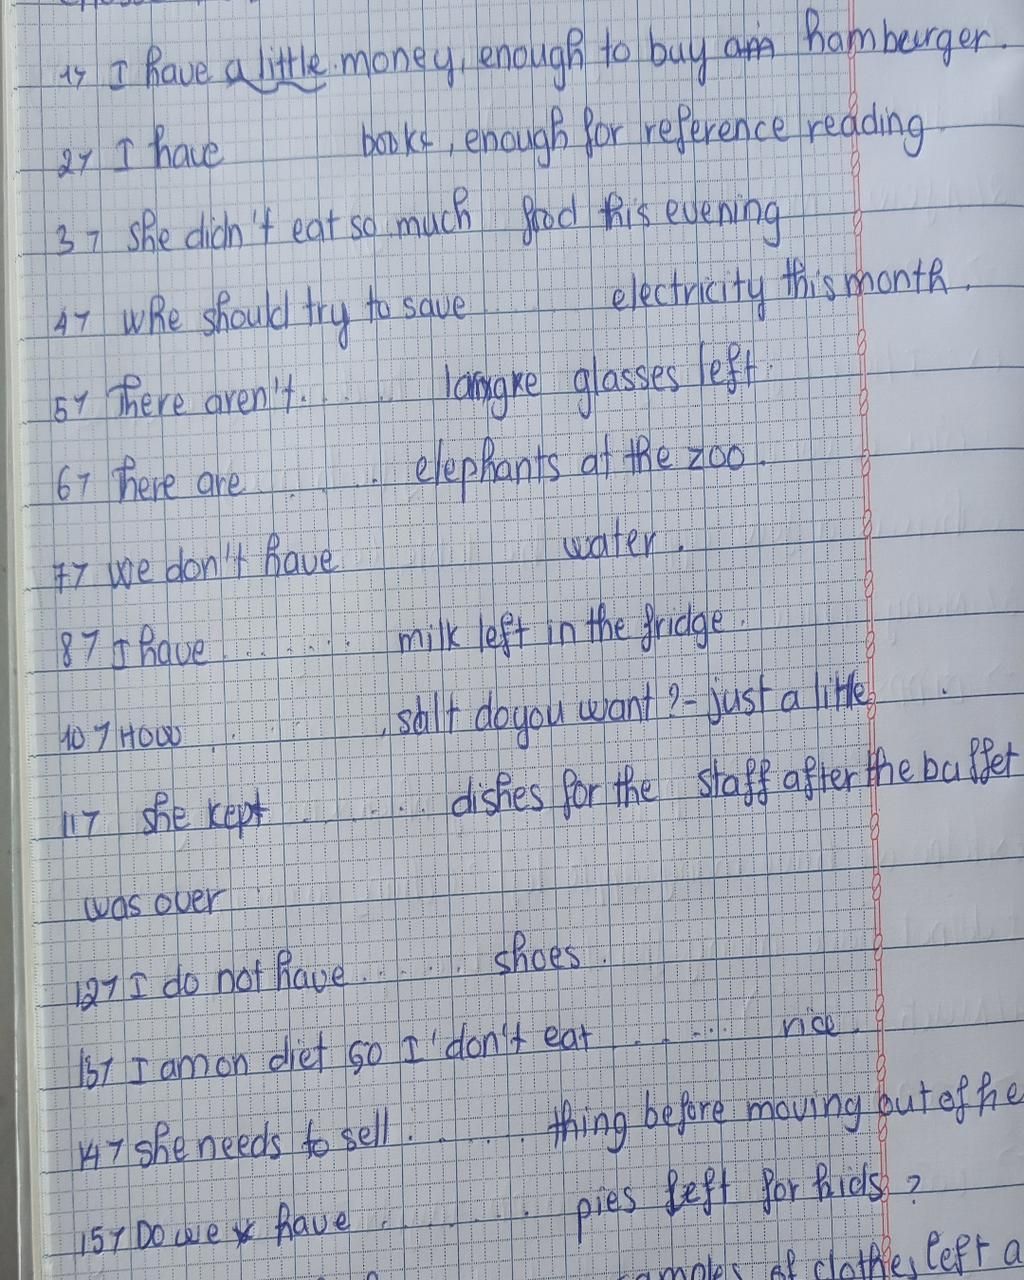 1, I have a little money, enough to buy a hamburger.
2, I have books, enough for reference reading
3, she didn't eat so much food this evening
4, whe should try to save electricity this month.
5, There aren't..... large glasses left.
6, There are ...... elephants at the zoo.
7, We don't have water.
8, I have ....... milk left in the fridge.
10, How ...... salt do you want? - just a little.
11, she kept ....... dishes for the staff after the buffet
was over
12, I do not have....... shoes.
13, I am on diet so I don't eat ..... rice.
14, she needs to sell ....... thing before moving out of he
15, Do we have ....... pies left for kids?
of clothes left a